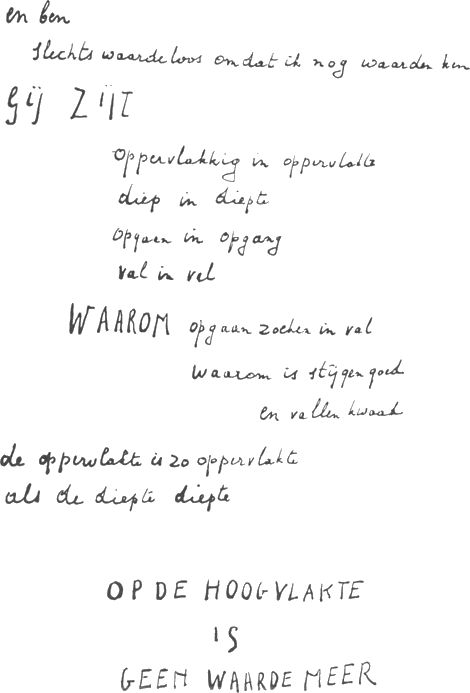 en ben
slechts waardeloos omdat ik nog waarden ken
GIJ ZIJT
oppervlakkig in oppervlakte
diep in diepte
opgaan in opgang
val in val
WAAROM opgaan zoeken in val
waarom is stijgen goed
en vallen kwaad
de oppervlakte is zo oppervlakte
als de diepte diepte
OP DE HOOGVLAKTE
IS
GEEN WAARDE MEER